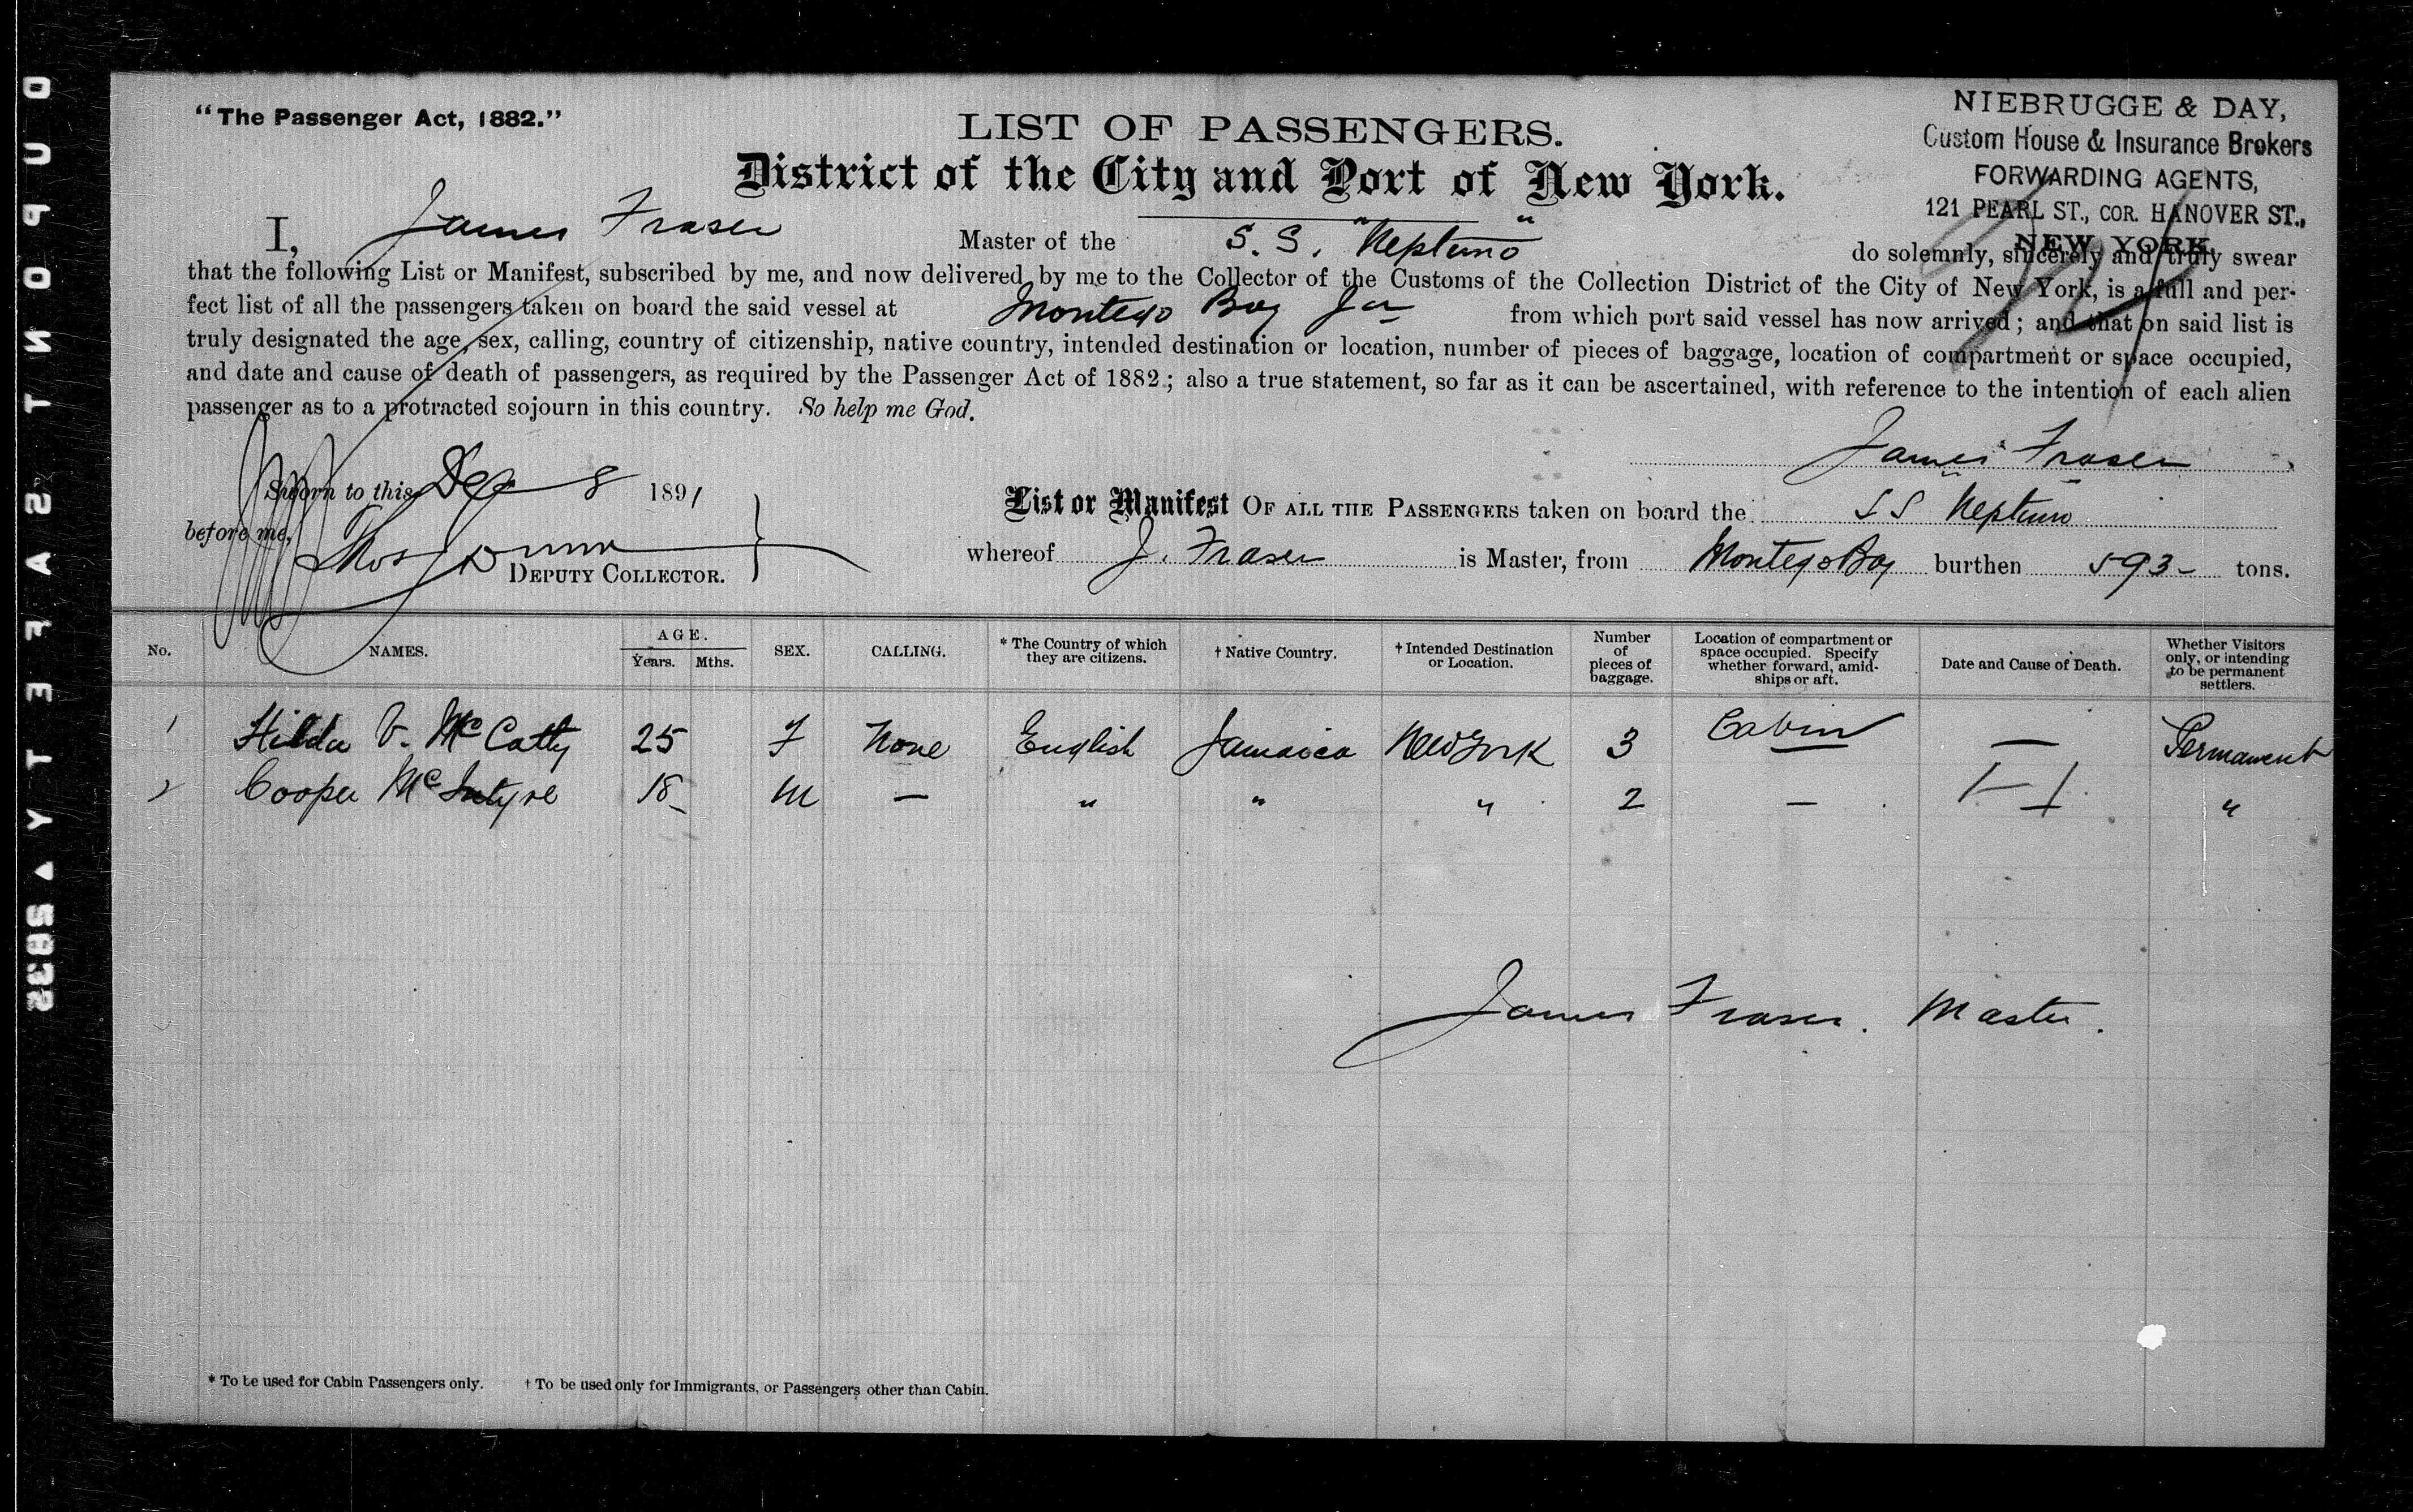 "The Passenger Act, 1882."
LIST OF PASSENGERS.
District of the City and Port of New York.
NIEBRUGGE & DAY,
Custom House & Insurance Brokers
FORWARDING AGENTS,
121 PEARL ST., COR. HANOVER ST.,
NEW YORK.
I, James Fraser Master of the S. S. "Neptuno" do solemnly, sincerely and truly swear
that the following List or Manifest, subscribed by me, and now delivered by me to the Collector of the Customs of the Collection District of the City of New York, is a full and per-
fect list of all the passengers taken on board the said vessel at Montego Bay Ja from which port said vessel has now arrived; and that on said list is
truly designated the age, sex, calling, country of citizenship, native country, intended destination or location, number of pieces of baggage, location of compartment or space occupied,
and date and cause of death of passengers, as required by the Passenger Act of 1882; also a true statement, so far as it can be ascertained, with reference to the intention of each alien
passenger as to a protracted sojourn in this country. So help me God.
James Fraser
Sworn to this Dec 8 1891
before me, Thos Dunn
DEPUTY COLLECTOR.
List or Manifest OF ALL THE PASSENGERS taken on board the SS Neptuno
whereof J. Fraser is Master, from Montego Bay burthen 593 - tons.
No. NAMES. AGE. Years. Mths. SEX. CALLING. * The Country of which they are citizens. † Native Country. † Intended Destination or Location. Number of pieces of baggage. Location of compartment or space occupied. Specify whether forward, amid-ships or aft. Date and Cause of Death. Whether Visitors only, or intending to be permanent settlers.
1 Hilda V. McCatty 25 F None English Jamaica New York 3 Cabin — Permanent
2 Cooper McIntyre 18 M — " " " 2 — "
James Fraser. Master.
* To be used for Cabin Passengers only. † To be used only for Immigrants, or Passengers other than Cabin.